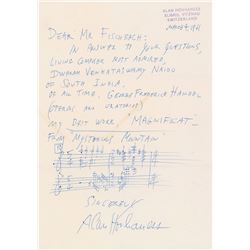 ALAN HOVHANESS
SWITZERLAND
DEAR MR FISCHBACH:
IN ANSWER TO YOUR QUESTIONS,
LIVING COMPOSER MOST ADMIRED,
DWARAM VENKATASWAMY NAIDU
OF SOUTH INDIA.
OF ALL TIME, GEORGE FREDERICK HANDEL
(OPERAS AND ORATORIOS)
MY BEST WORK, "MAGNIFICAT"
FROM "MYSTERIOUS MOUNTAIN"
SINCERELY
Alan Hovhaness